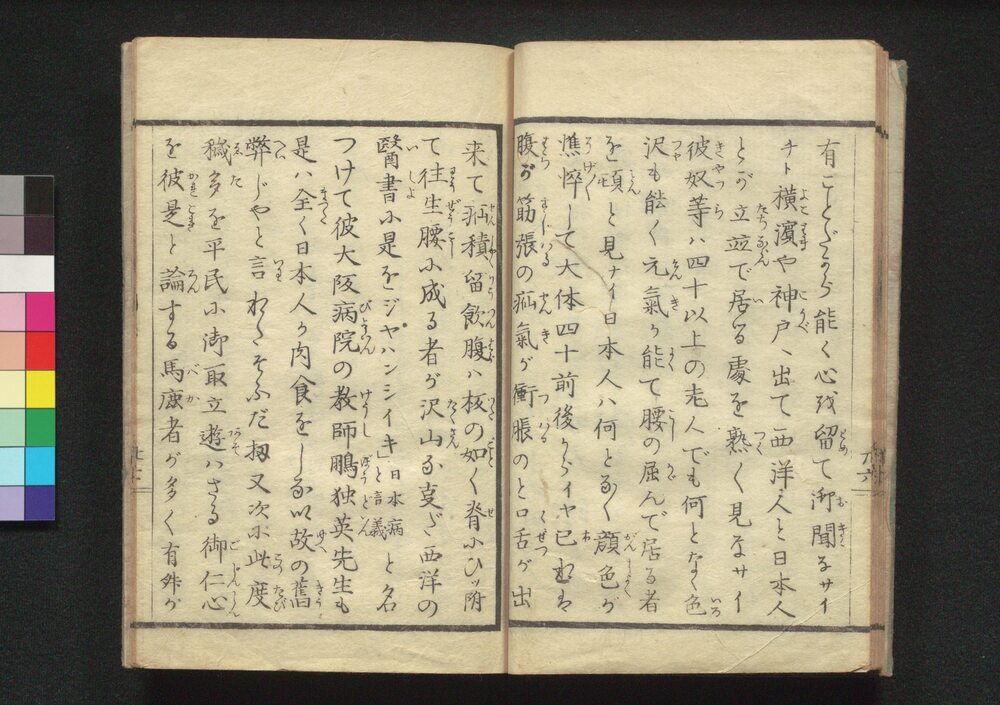 有ことだから能く心を留て御聞なサイ
チト横濱や神戸へ出て西洋人と日本人
とが立並で居る處を熟く見なサイ
彼奴等ハ四十以上の老人でも何となく色
沢も能く元氣も能て腰の屈んで居る者
を頓と見ナイ日本人ハ何となく顔色が
憔悴して大体四十前後からイヤ已
腹が筋張の疝氣が衝脹のと口舌が出
来て疝積留飲腹ハ板の如く脊にひッ附
て往生腰に成る者が沢山な支ゾ西洋の
醫書に是を「ジヤパンシイキ」日本病と言義と名
つけて彼大阪病院の教師鵬独英先生も
是ハ全く日本人が肉食をしない故の舊
弊じやと言れたそふだ扨又次に此度
穢多を平民に御取立遊ハさる御仁心
を彼是と論する馬鹿者が多く有舛が